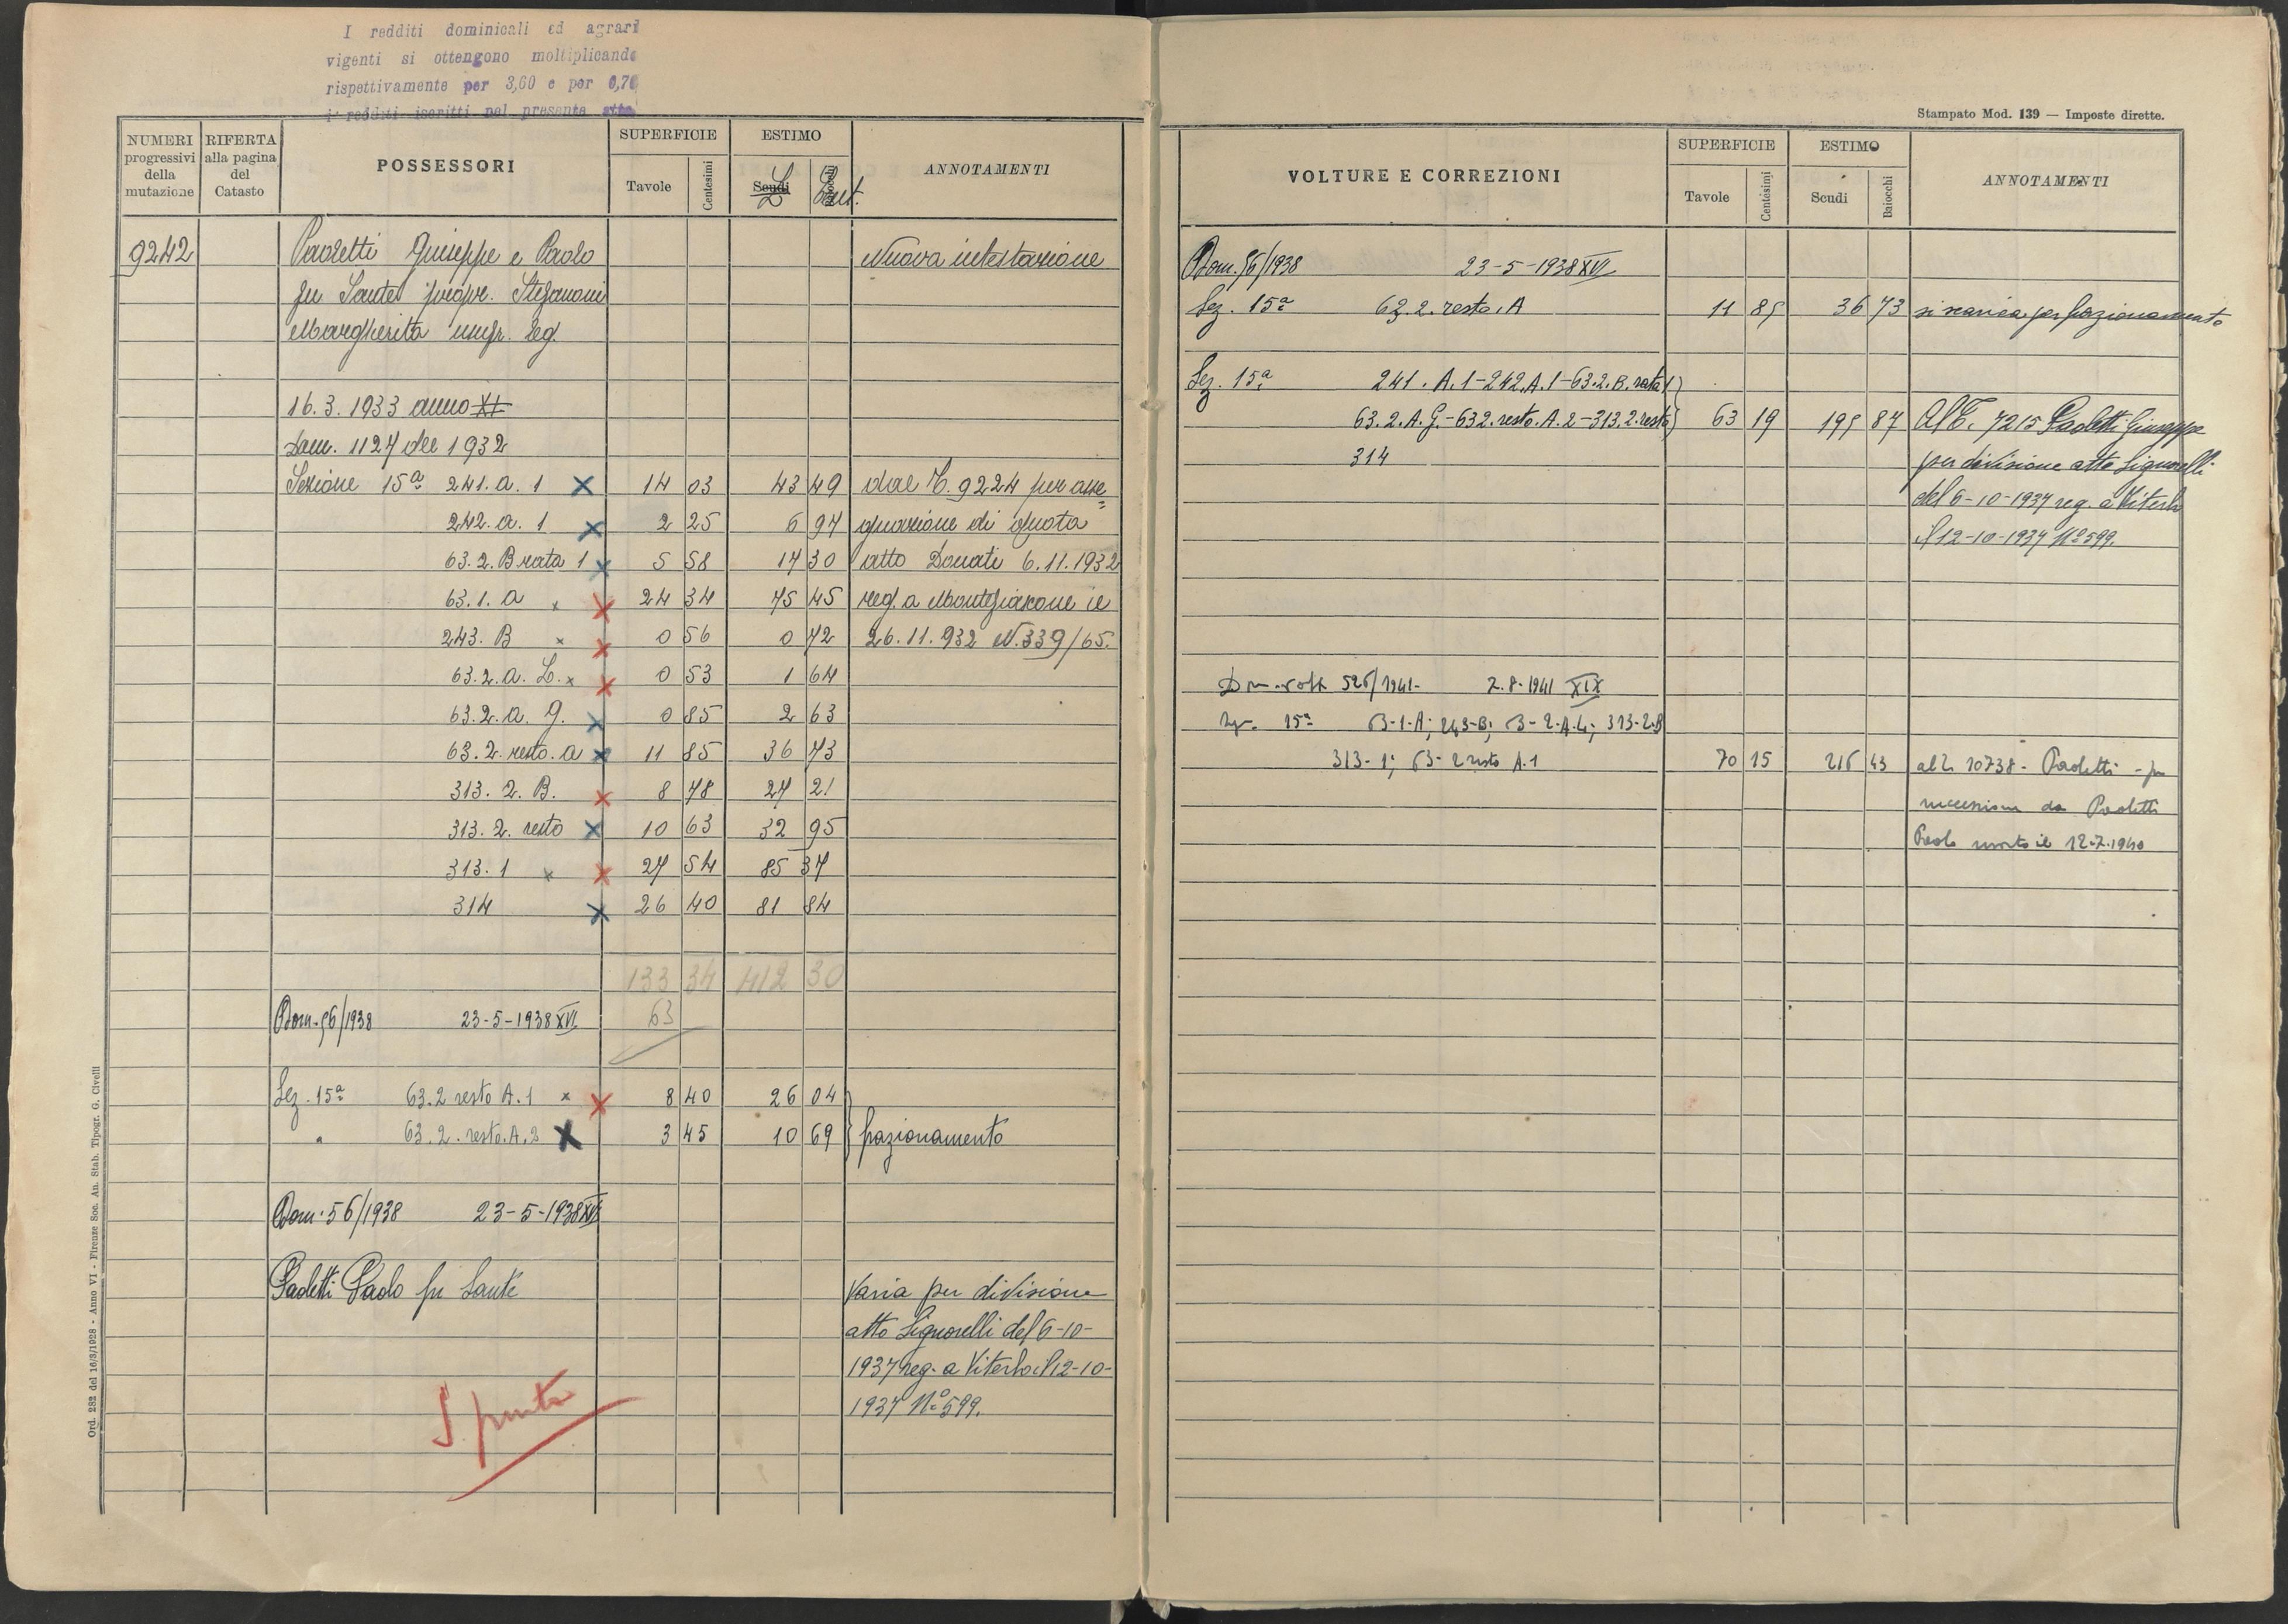 I redditi dominicali ed agrari
vigenti si ottengono moltiplicando
rispettivamente per 3,60 e per 0,70
i redditi iscritti nel presente atto
Stampato Mod. 139 — Imposte dirette.
NUMERI progressivi della mutazione
RIFERTA alla pagina del Catasto
POSSESSORI
SUPERFICIE
Tavole Centesimi
ESTIMO
Scudi L Cent.
ANNOTAMENTI
9242 Paoletti Giuseppe e Paolo Nuova intestazione
fu Sante propr. Stefanoni
Margherita usufr. leg.
16.3.1933 anno XI
Dom. 1127 del 1932
Sezione 15ª 241.a.1 X 14 03 43 49 dal T. 9224 per asse=
242.a.1 X 2 25 6 97 gnazione di quota
63.2.B rata 1 X 5 58 17 30 atto Donati 6.11.1932
63.1.a x X 24 34 75 45 reg. a Montefiascone il
243.B x X 0 56 0 72 26.11.932 N.339/65.
63.2.a.L. x X 0 53 1 64
63.2.a.g. X 0 85 2 63
63.2.resto.a X 11 85 36 73
313.2.B. X 8 78 27 21
313.2.resto X 10 63 32 95
313.1 x X 27 54 85 37
314 X 26 40 81 84
133 34 412 30
63
Dom. 56/1938 23-5-1938 XVI
Sez. 15ª 63.2 resto A.1 x X 8 40 26 04
" 63.2.resto.A.2 X 3 45 10 69 frazionamento
Dom. 56/1938 23-5-1938 XVI
Paoletti Paolo fu Sante Varia per divisione
atto Signorelli del 6-10-
1937 reg. a Viterbo il 12-10-
1937 Nº 599.
Ord. 282 del 16/3/1928 - Anno VI - Firenze Soc. An. Stab. Tipogr. G. Civelli
VOLTURE E CORREZIONI
SUPERFICIE
Tavole Centesimi
ESTIMO
Scudi Baiocchi
ANNOTAMENTI
Dom. 56/1938 23-5-1938 XVI
Sez. 15ª 63.2.resto.A 11 85 36 73 si scarica per frazionamento
Sez. 15ª 241.A.1-242.A.1-63.2.B.rata 1
63.2.A.G.-63.2.resto.A.2-313.2.resto 63 19 195 87 Al T. 7215 Paoletti Giuseppe
314 per divisione atto Signorelli
del 6-10-1937 reg. a Viterbo
il 12-10-1937 Nº 599.
526/1941- 2.8.1941 XIX
15ª 63-1-A; 243-B; 63-2-A.L; 313-2.B
313-1; 63-2 resto A.1 70 15 216 43 al T. 10738- Paoletti - per
successione da Paoletti
Paolo morto il 12.7.1940